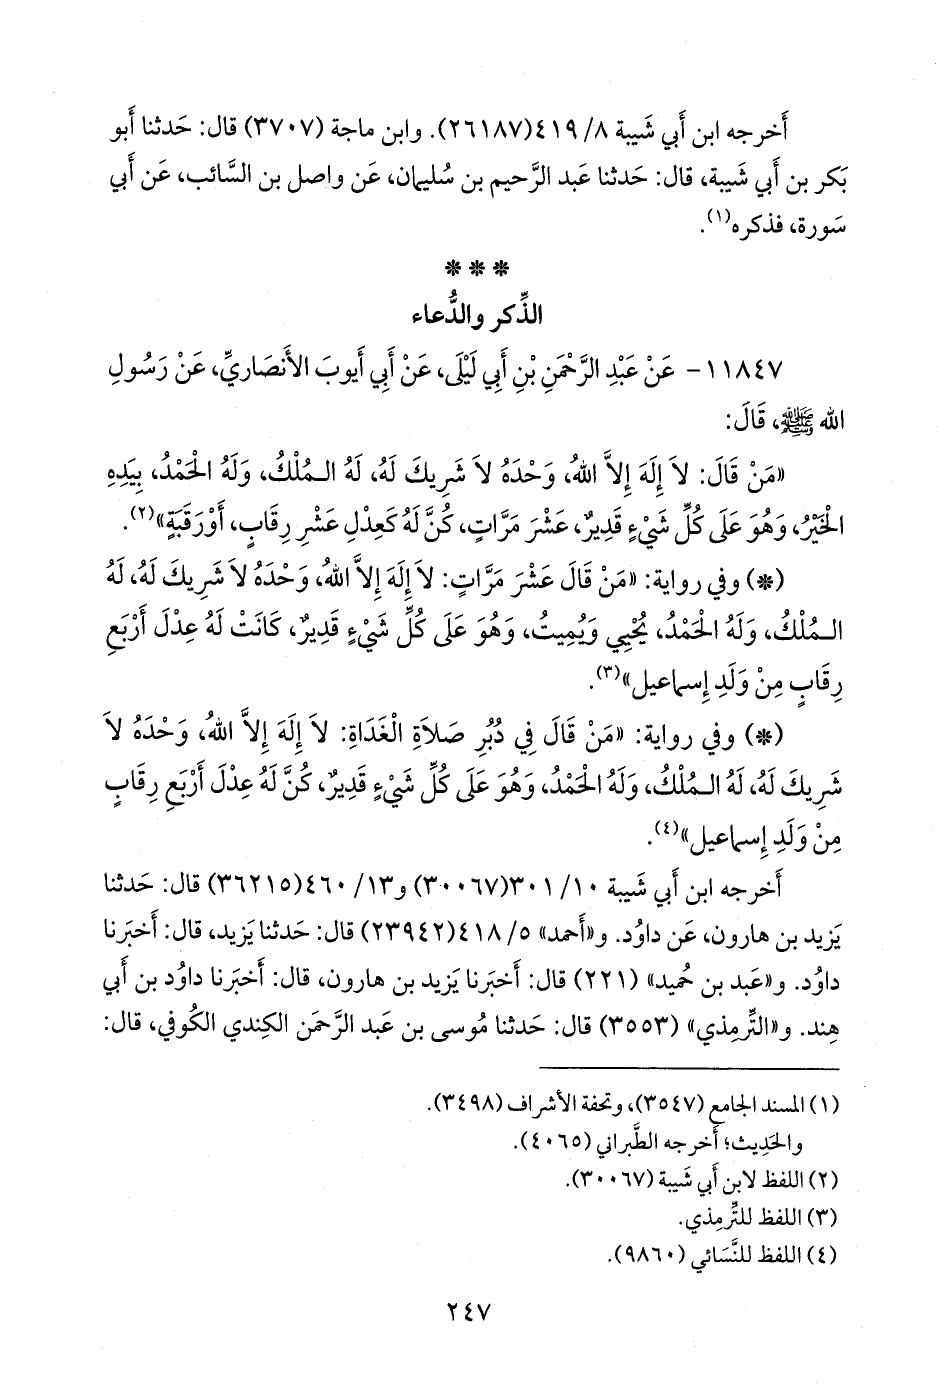 أَخرجه ابن أَبي شَيبة ٨/ ٤١٩(٢٦١٨٧). وابن ماجة (٣٧٠٧) قال: حَدثنا أَبو
بَكر بن أَبي شَيبة، قال: حَدثنا عَبد الرَّحيم بن سُليمان، عَن واصل بن السَّائب، عَن أَبي
سَورة، فذكره(١).
❋❋❋
الذِّكر والدُّعاء
١١٨٤٧- عَنْ عَبْدِ الرَّحْمَنِ بْنِ أَبِي لَيْلَى، عَنْ أَبِي أَيوبَ الأَنصَارِيِّ، عَنْ رَسُولِ
الله ﷺ، قَالَ:
«مَنْ قَالَ: لاَ إِلَهَ إِلاَّ اللهُ، وَحْدَهُ لاَ شَرِيكَ لَهُ، لَهُ الـمُلْكُ، وَلَهُ الْحَمْدُ، بِيَدِهِ
الْخَيْرُ، وَهُوَ عَلَى كُلِّ شَيْءٍ قَدِيرٌ، عَشْرَ مَرَّاتٍ، كُنَّ لَهُ كَعِدْلِ عَشْرِ رِقَابٍ، أَوْ رَقَبَةٍ»(٢).
(❋) وفي رواية: «مَنْ قَالَ عَشْرَ مَرَّاتٍ: لاَ إِلَهَ إِلاَّ اللهُ، وَحْدَهُ لاَ شَرِيكَ لَهُ، لَهُ
الـمُلْكُ، وَلَهُ الْحَمْدُ، يُحْيِي وَيُمِيتُ، وَهُوَ عَلَى كُلِّ شَيْءٍ قَدِيرٌ، كَانَتْ لَهُ عِدْلَ أَرْبَعِ
رِقَابٍ مِنْ وَلَدِ إِسماعيل»(٣).
(❋) وفي رواية: «مَنْ قَالَ فِي دُبُرِ صَلاَةِ الْغَدَاةِ: لاَ إِلَهَ إِلاَّ اللهُ، وَحْدَهُ لاَ
شَرِيكَ لَهُ، لَهُ الـمُلْكُ، وَلَهُ الْحَمْدُ، وَهُوَ عَلَى كُلِّ شَيْءٍ قَدِيرٌ، كُنَّ لَهُ عِدْلَ أَرْبَعِ رِقَابٍ
مِنْ وَلَدِ إِسماعيل»(٤).
أَخرجه ابن أَبي شَيبة ١٠/ ٣٠١(٣٠٠٦٧) و١٣/ ٤٦٠(٣٦٢١٥) قال: حَدثنا
يَزيد بن هارون، عَن داوُد. و«أَحمد» ٥/ ٤١٨(٢٣٩٤٢) قال: حَدثنا يَزيد، قال: أَخبَرنا
داوُد. و«عَبد بن حُميد» (٢٢١) قال: أَخبَرنا يَزيد بن هارون، قال: أَخبَرنا داوُد بن أَبي
هِند. و«التِّرمِذي» (٣٥٥٣) قال: حَدثنا مُوسى بن عَبد الرَّحمَن الكِندي الكُوفي، قال:
(١) المسند الجامع (٣٥٤٧)، وتحفة الأشراف (٣٤٩٨).
والحَدِيث؛ أَخرجه الطَّبراني (٤٠٦٥).
(٢) اللفظ لابن أَبي شَيبة (٣٠٠٦٧).
(٣) اللفظ للتِّرمِذي.
(٤) اللفظ للنَّسَائي (٩٨٦٠).
٢٤٧